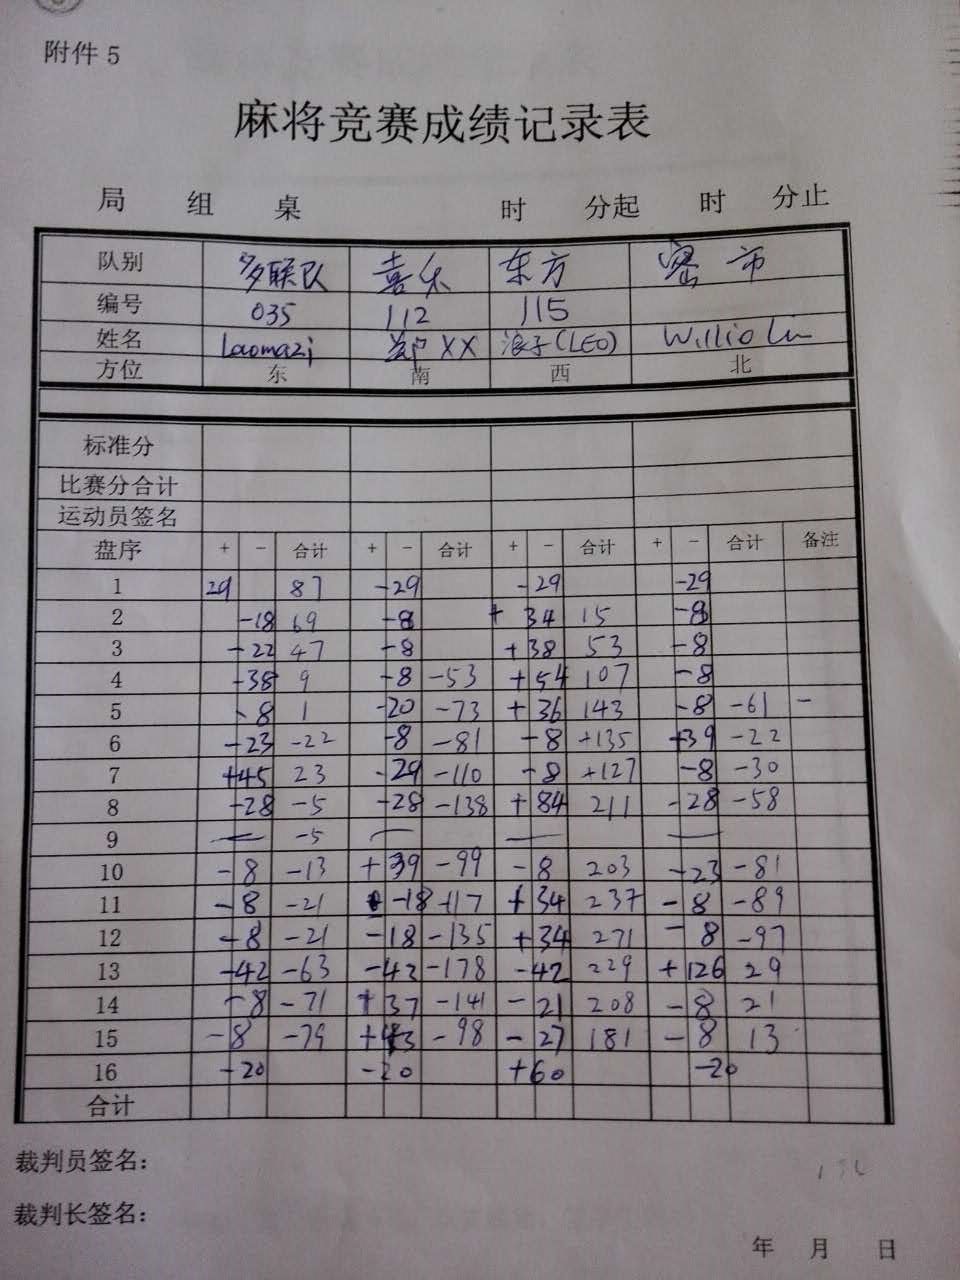 附件 5
麻将竞赛成绩记录表
局 组 桌 时 分起 时 分止
队别 多联队 喜乐 东方 密市
编号 035 112 115
姓名 Laomazi XX 浪子(LEO) Willio Lin
方位 东 南 西 北
标准分
比赛分合计
运动员签名
盘序 + − 合计 + − 合计 + − 合计 + − 合计 备注
1 29 87 -29 -29 -29
2 -18 69 -8 + 34 15 -8
3 -22 47 -8 +38 53 -8
4 -38 9 -8 -53 +54 107 -8
5 -8 1 -20 -73 + 36 143 -8 -61 -
6 -23 -22 -8 -81 -8 +135 +39 -22
7 +45 23 -29 -110 -8 +127 -8 -30
8 -28 -5 -28 -138 +84 211 -28 -58
9 — -5 — — —
10 -8 -13 +39 -99 -8 203 -23 -81
11 -8 -21 -18 -117 +34 237 -8 -89
12 -8 -21 -18 -135 +34 271 -8 -97
13 -42 -63 -43 -178 -42 229 +126 29
14 -8 -71 +37 -141 -21 208 -8 21
15 -8 -79 +43 -98 -27 181 -8 13
16 -20 -20 +60 -20
合计
裁判员签名：
裁判长签名：
年 月 日